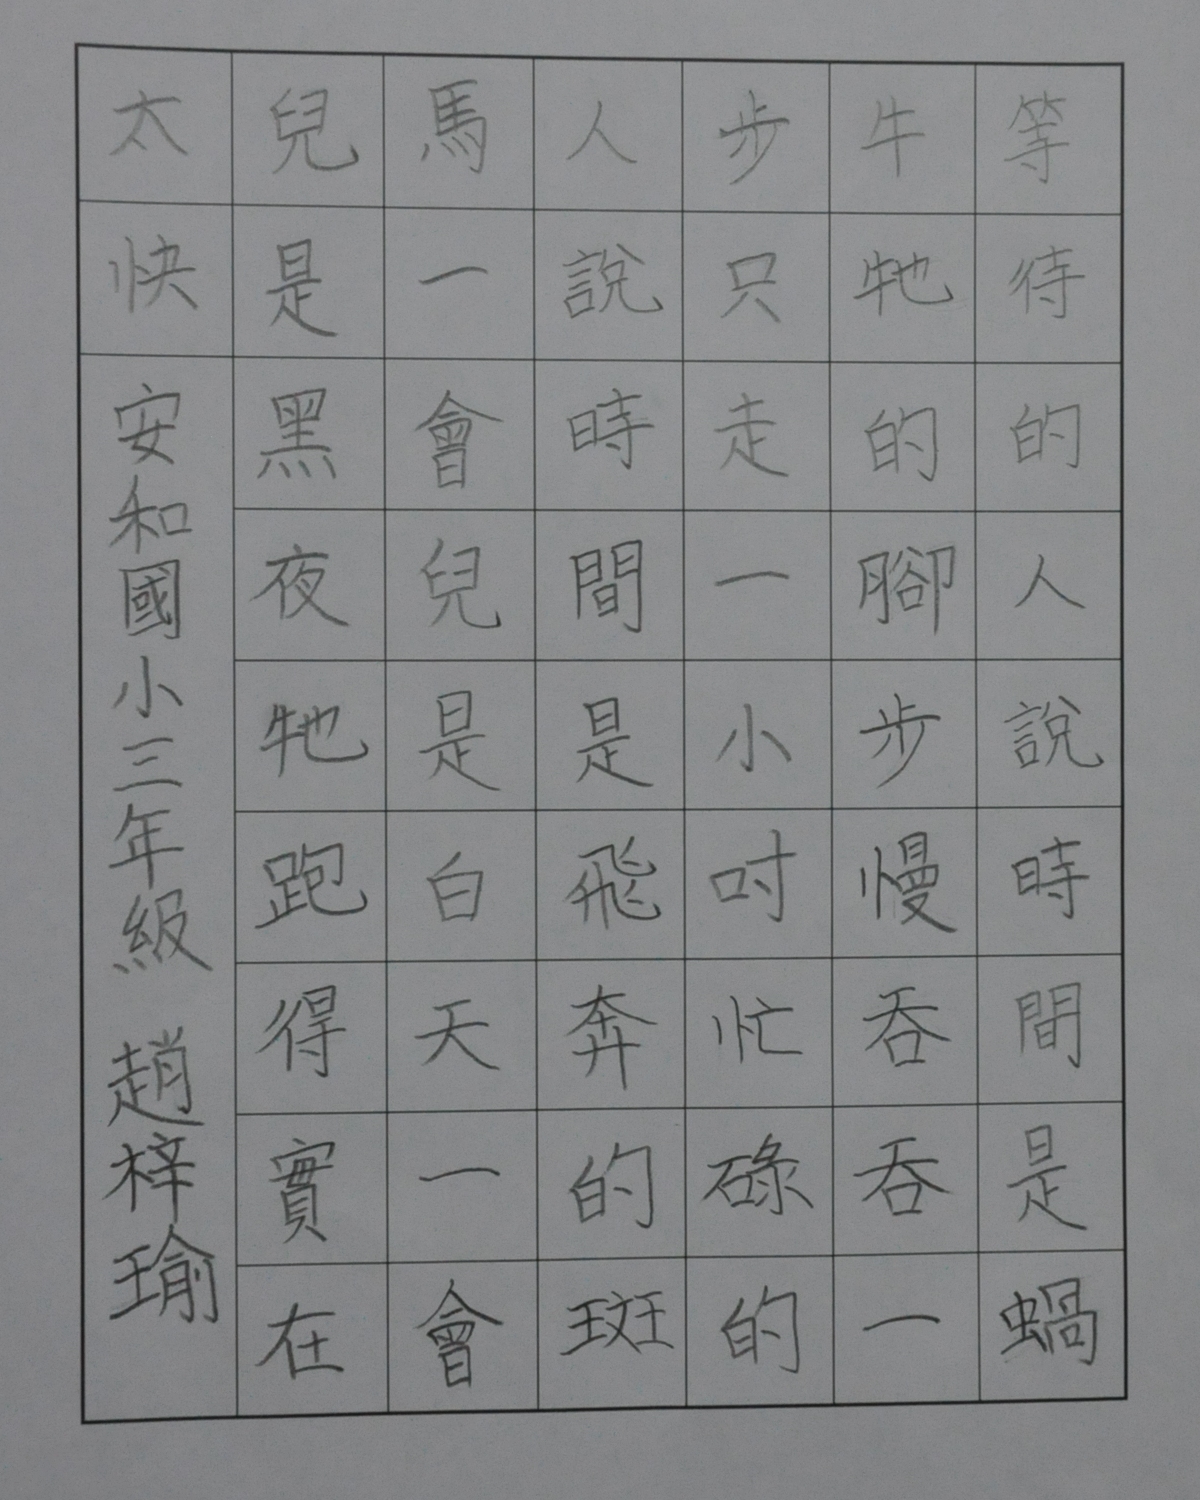 等待的人說時間是蝸
牛牠的腳步慢吞吞一
步只走一小吋忙碌的
人說時間是飛奔的斑
馬一會兒是白天一會
兒是黑夜牠跑得實在
太快
安和國小三年級 趙梓瑜